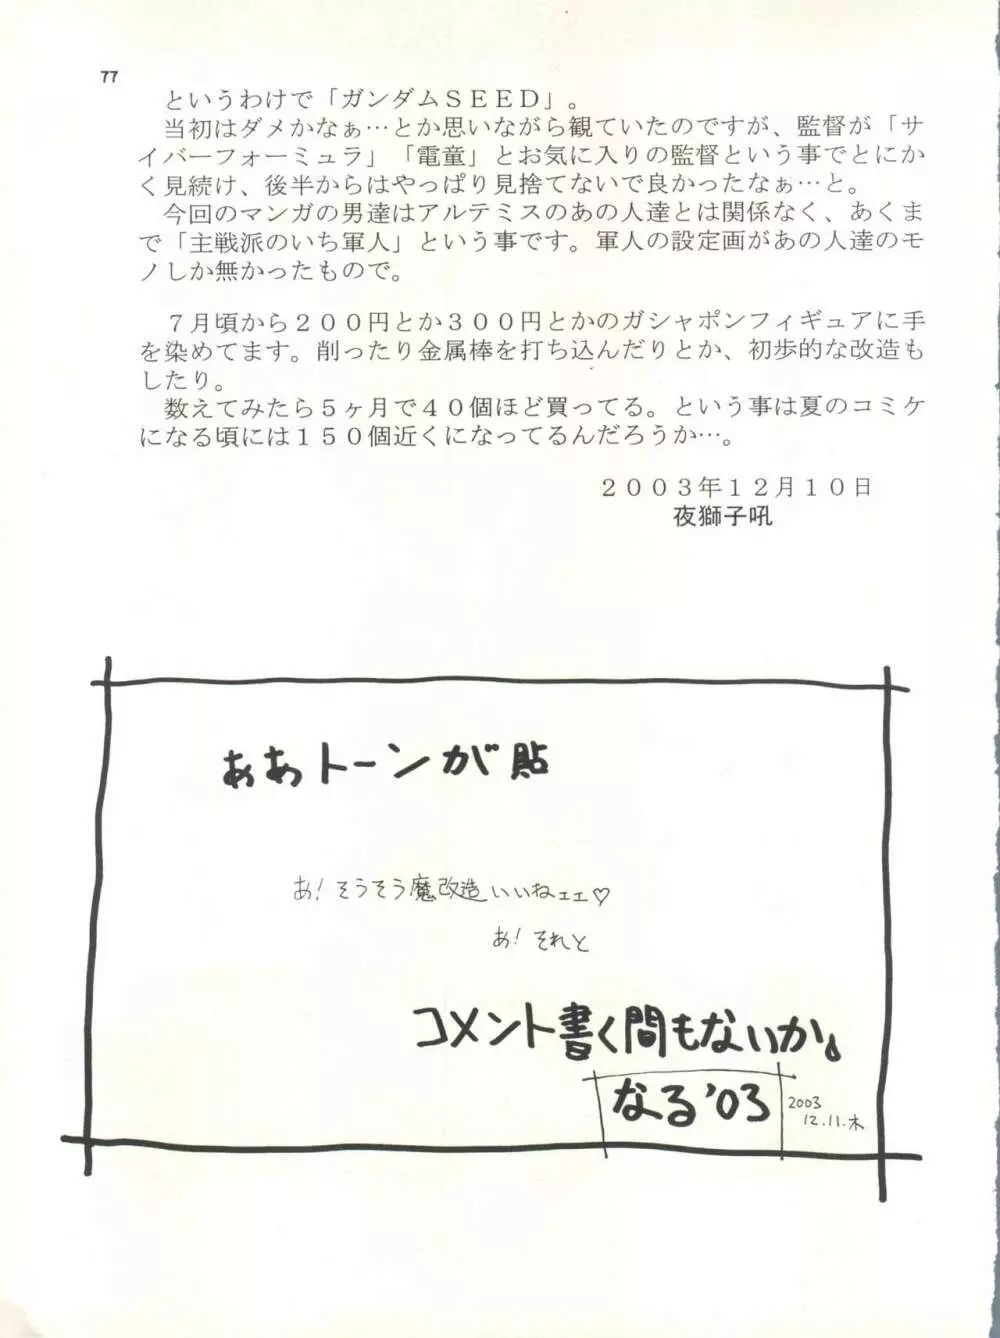 77
というわけで「ガンダムＳＥＥＤ」。
当初はダメかなぁ…とか思いながら観ていたのですが、監督が「サ
イバーフォーミュラ」「電童」とお気に入りの監督という事でとにか
く見続け、後半からはやっぱり見捨てないで良かったなぁ…と。
今回のマンガの男達はアルテミスのあの人達とは関係なく、あくま
で「主戦派のいち軍人」という事です。軍人の設定画があの人達のモ
ノしか無かったもので。
７月頃から２００円とか３００円とかのガシャポンフィギュアに手
を染めてます。削ったり金属棒を打ち込んだりとか、初歩的な改造も
したり。
数えてみたら５ヶ月で４０個ほど買ってる。という事は夏のコミケ
になる頃には１５０個近くになってるんだろうか…。
２００３年１２月１０日
夜獅子吼
ああトーンが貼
あ！そうそう魔改造いいねェェ♡
あ！それと
コメント書く間もないか。
なる'03
2003
12.11.木